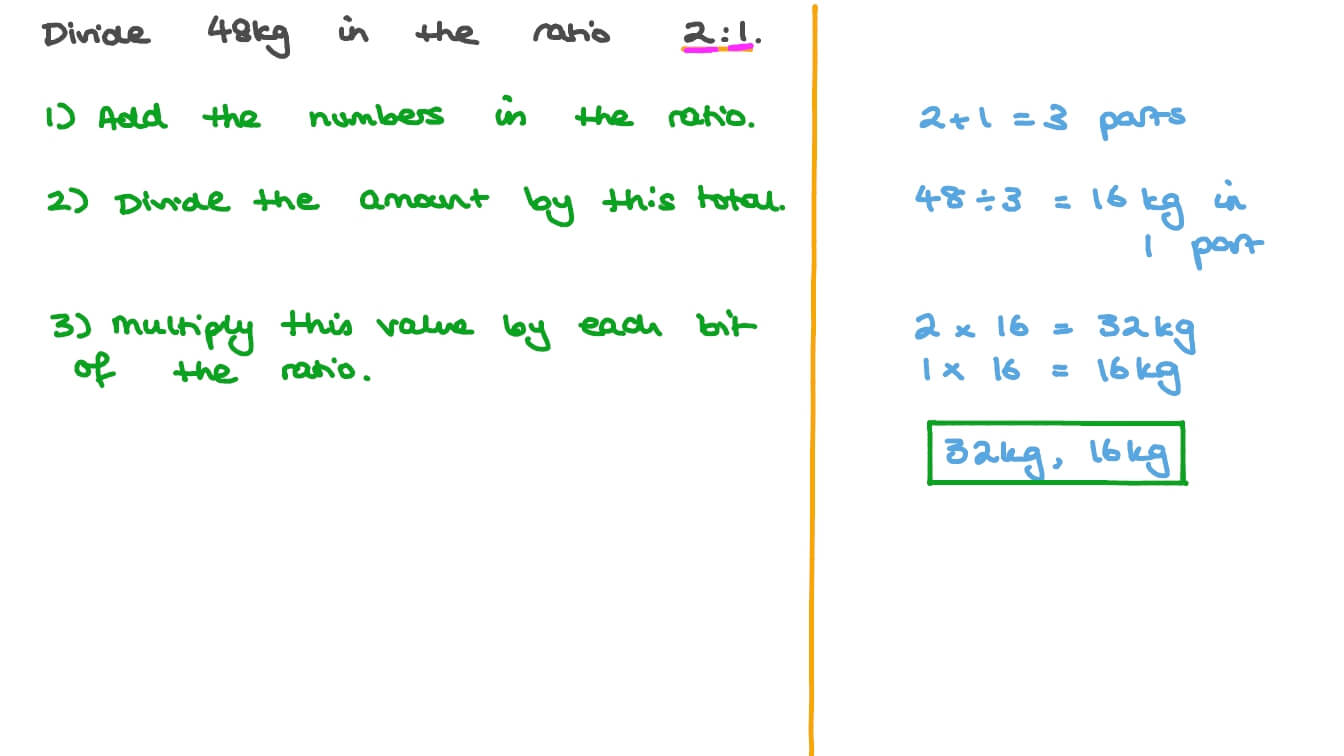 Divide 48kg in the ratio 2:1.
1) Add the numbers in the ratio.
2+1 = 3 parts
2) Divide the amount by this total.
48÷3 = 16 kg in
1 part
3) Multiply this value by each bit
of the ratio.
2 x 16 = 32kg
1 x 16 = 16kg
32kg, 16kg